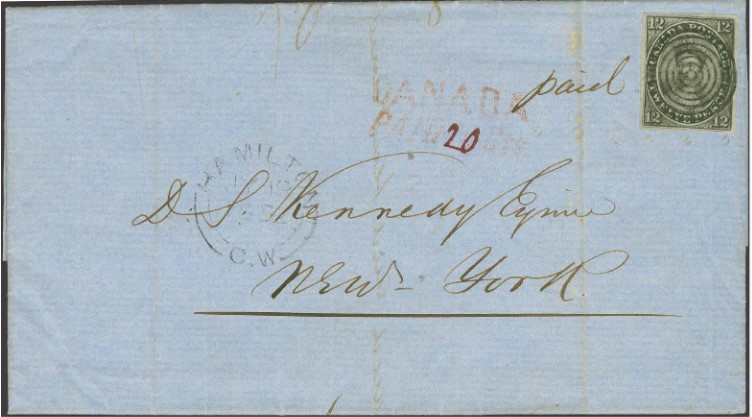 12 12
CANADA POSTAGE
TWELVE PENCE
12 12
paid
CANADA
PAID
20
HAMILTON
C.W.
D. S. Kennedy Esquire
New-York.